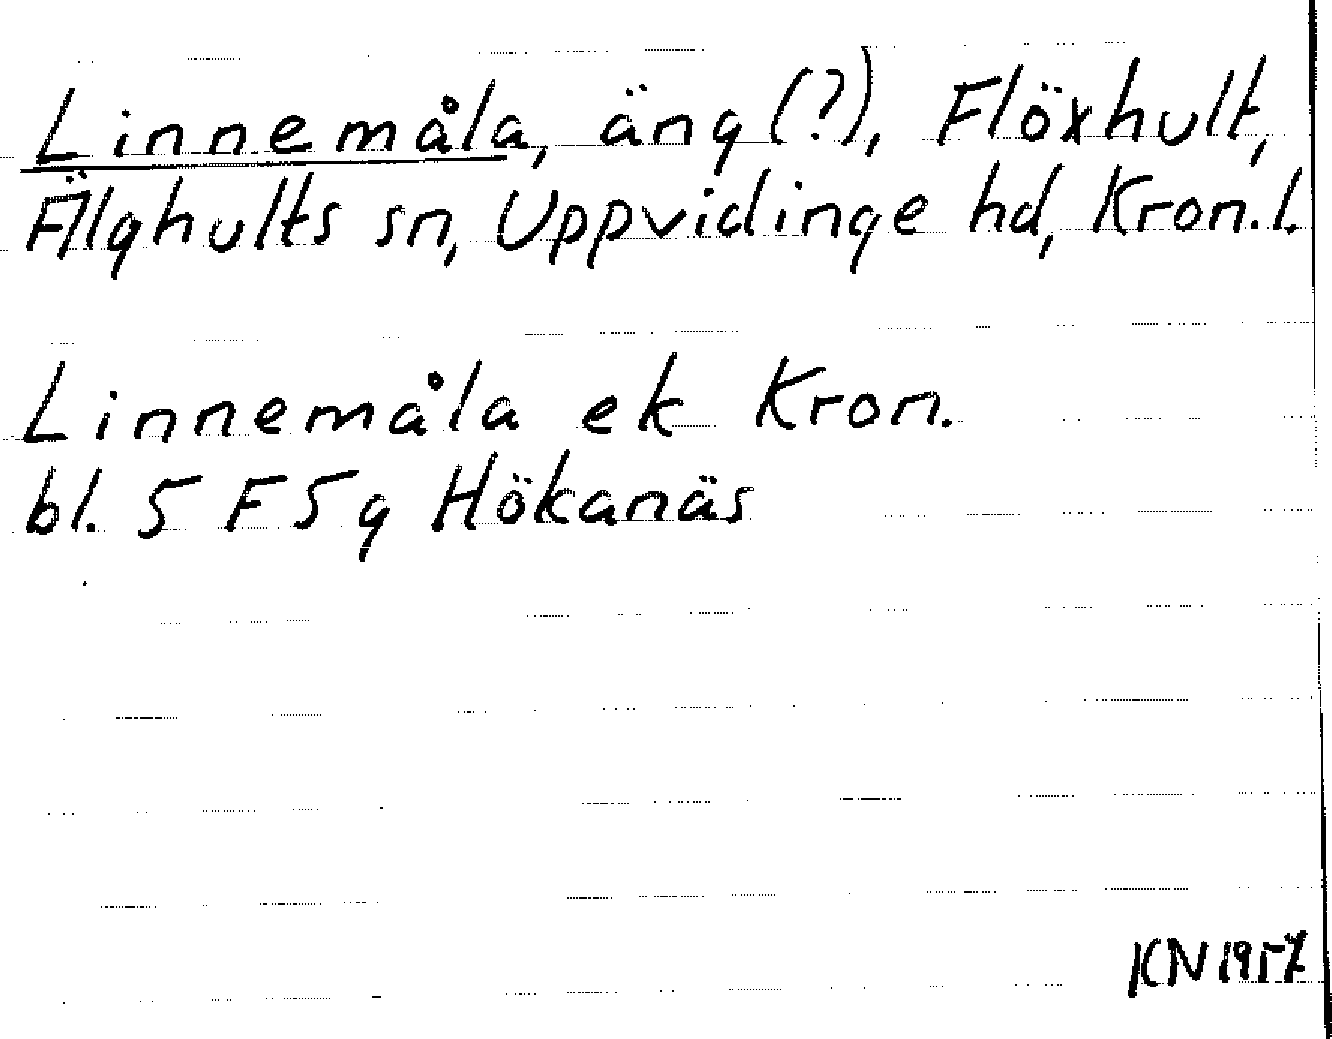 Linnemåla, äng (?), Flöxhult,
Älghults sn, Uppvidinge hd, Kron.l.
Linnemåla ek Kron.
bl. 5 F 5 g Hökanäs
KN 1957